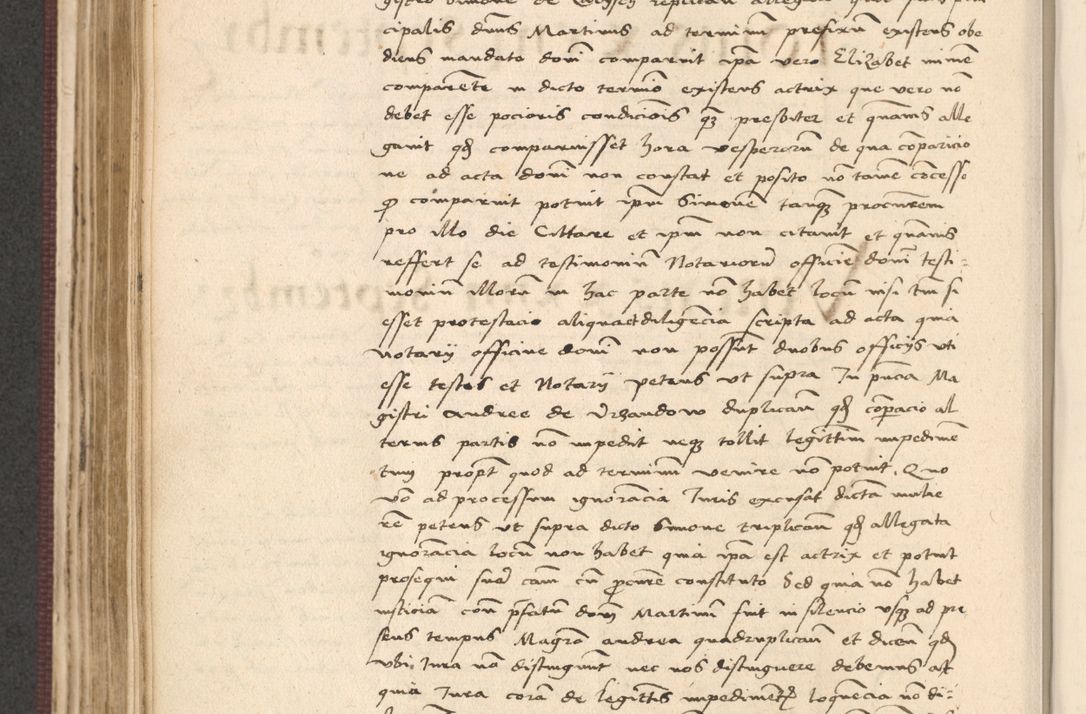 cipalis dnus Martinus ad terminum prefixum existens obe
diens mandato domi comparuit ipa vero Elizabet mi me
comparente in dicto termino existens actrix que vero no
debet esse pocioris condicionis qz presbiter et quamvis alle
gavit qd comparuisset hora vesperorum de qua comparicio
ne ad acta domi non constat et posito no tamen concesso
comparuit potuit ipm Simonem tanqz procuratorem
pro illo die Cittare et ipm non citavit et quamvis
reffert se ad testimonium Notariorum officii domi testi
monium illorum in hac parte no habet locum nisi tm si
esset protestacio aliqua et diligencia scripta ad acta quia
notarii officii domi non possunt duobus officiis uti
esse testes et Notarii petens ut supra In pncia Ma
gistri Andree de Urzandow duplicam qd comparacio al
terius partis no impedit neqz tollit legittimum impedime
tum propt quod ad terminum venire no potuit. Quo
vo ad processum ignorancia Juris excusat dictam mulie
rem petens ut supra dicto Simone triplicam qd allegata
ignorancia locum non habet quia ipa est actrix et potuit
prosequi suam cam cum procuratore constituto Sed quia no habet
iusticiam con pfatum dnm Martinum fuit in silencio usqz ad pre
sens tempus Magro andrea quadruplicam et dicen qd
ubi Jura no distingunt nec nos distinguere debemus ast
quia Jura coram de legittis impedimentis loquencia no di